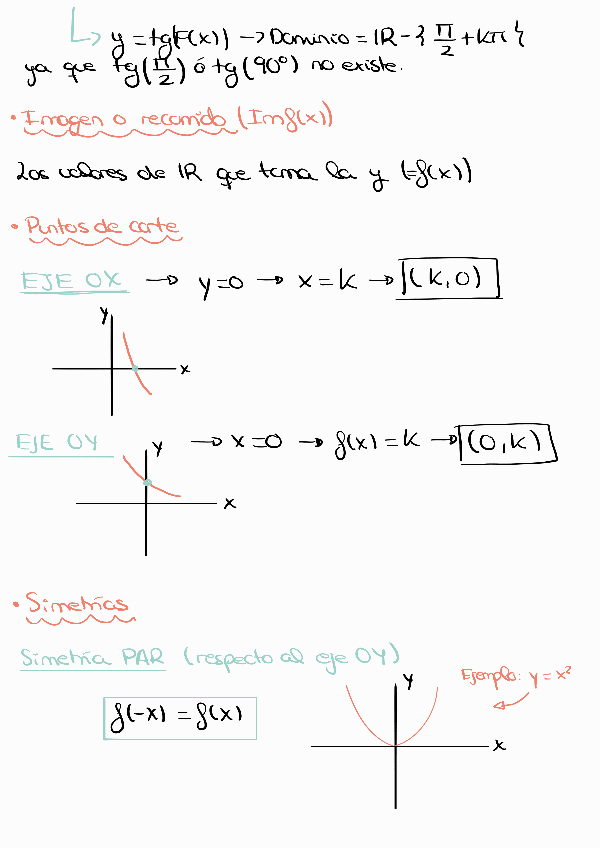 y = tg(F(x)) → Dominio = IR - { π/2 + kπ }
ya que tg(π/2) ó tg(90°) no existe.
• Imagen o recorrido (Imf(x))
Los valores de IR que toma la y (=f(x))
• Puntos de corte
EJE OX → y=0 → x=k → (k,0)
y
x
EJE OY → x=0 → f(x)=k → (0,k)
y
x
• Simetrías
Simetría PAR (respecto al eje OY)
Ejemplo: y=x²
y
f(-x) = f(x)
x